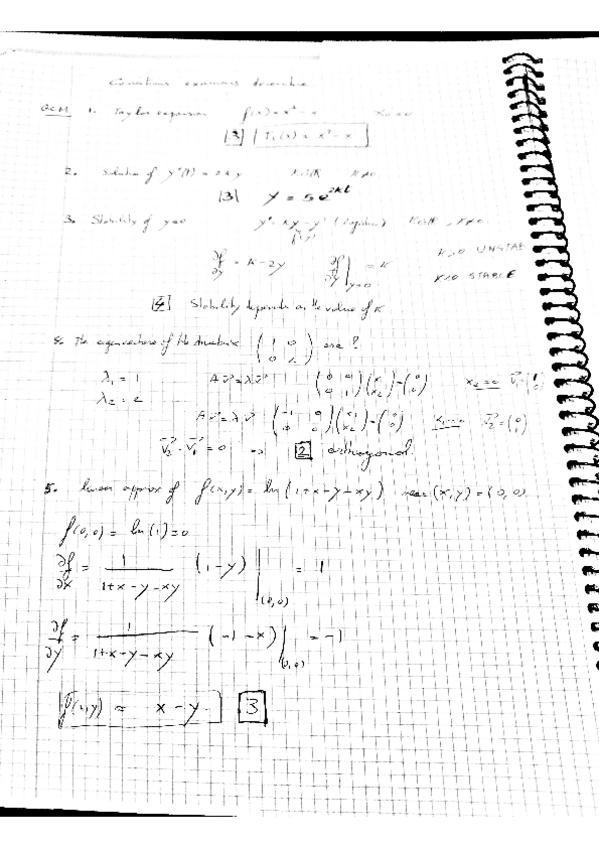 QCM 1. Taylor expansion f(x) = x² - x
3 T₂(x) = x² - x
2. Solution of y'(t) = 2ky k∈ℝ k≠0
3 y = 5e^{2kt}
3. Stability of y=0 y' = ky - y² (logistic) k∈ℝ, k≠0
∂f/∂y = k - 2y ∂f/∂y |_{y=0} = k k>0 UNSTAB
k<0 STABLE
4 Stability depends on the value of k
The eigenvectors of the matrix (1 0 ; 0 2) are ?
λ₁ = 1 Av⃗ = λv⃗ (0 0 ; 0 1)(x₁ ; x₂) = (0 ; 0) x₂ = 0 v⃗₁ = (1 ; 0)
λ₂ = 2
Av⃗ = λv⃗ (-1 0 ; 0 0)(x₁ ; x₂) = (0 ; 0) v⃗₂ = (0 ; 1)
v⃗₂ · v⃗₁ = 0 => 2 orthogonal
5. linear approx of f(x,y) = ln(1+x-y-xy) near (x,y) = (0,0)
f(0,0) = ln(1) = 0
∂f/∂x = 1/(1+x-y-xy) (1-y) |_{(0,0)} = 1
∂f/∂y = 1/(1+x-y-xy) (-1-x) |_{(0,0)} = -1
f(x,y) ≈ x - y 3